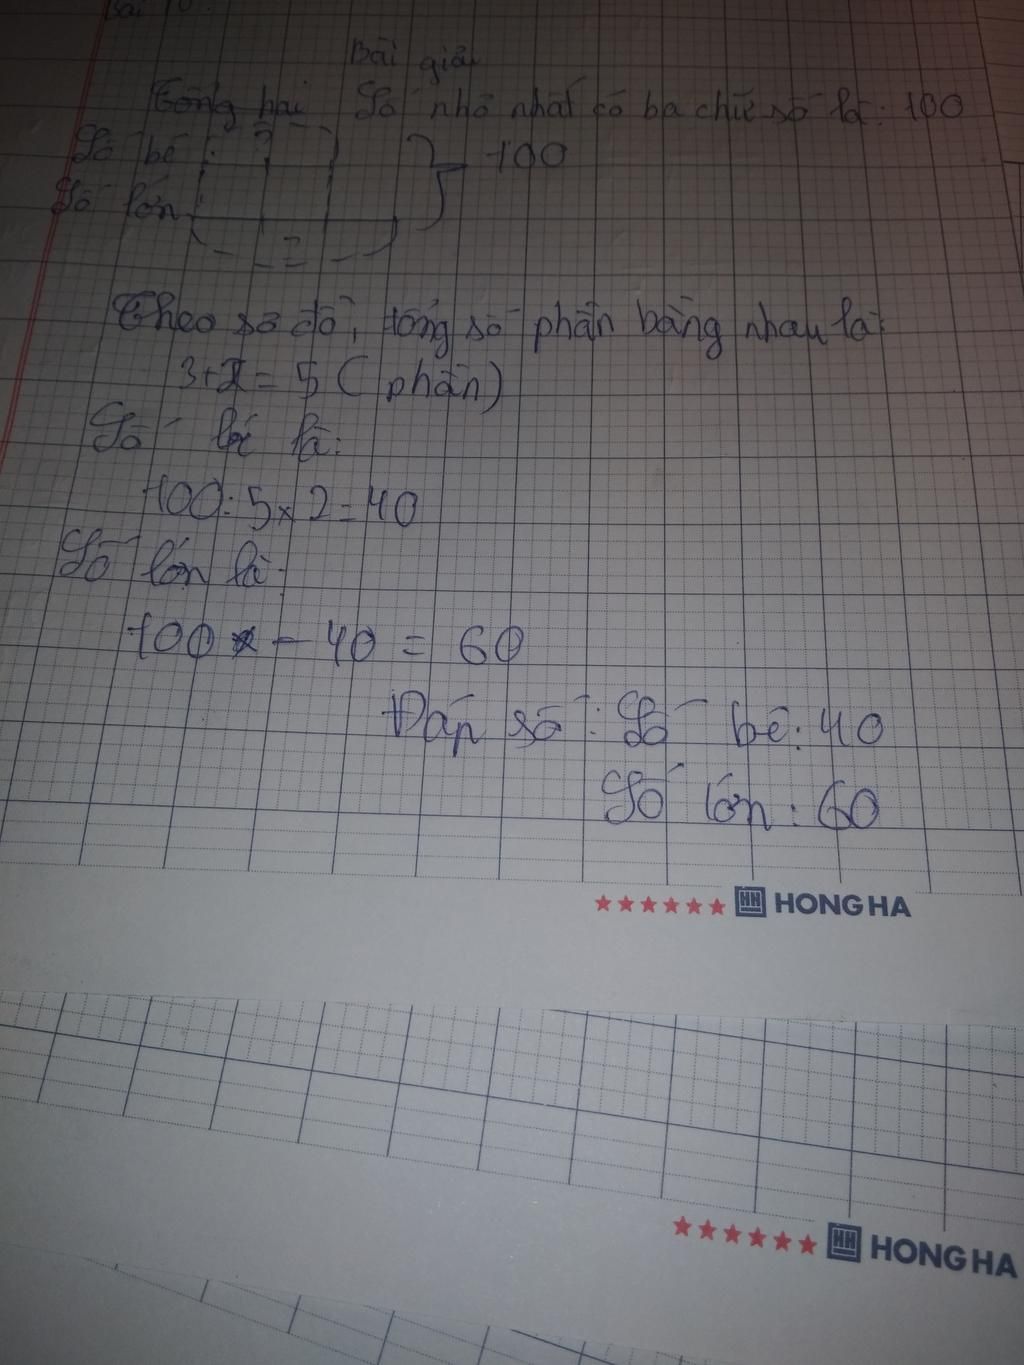 Bài 10:
Bài giải
Tổng hai Số nhỏ nhất có ba chữ số là: 100
Số bé : ? 100
Số lớn
?
Theo sơ đồ, tổng số phần bằng nhau là:
3+2 = 5 ( phần)
Số bé là:
100:5x2=40
Số lớn là:
100 - 40 = 60
Đáp số : Số bé: 40
Số lớn : 60
HH HONG HA
HH HONG HA